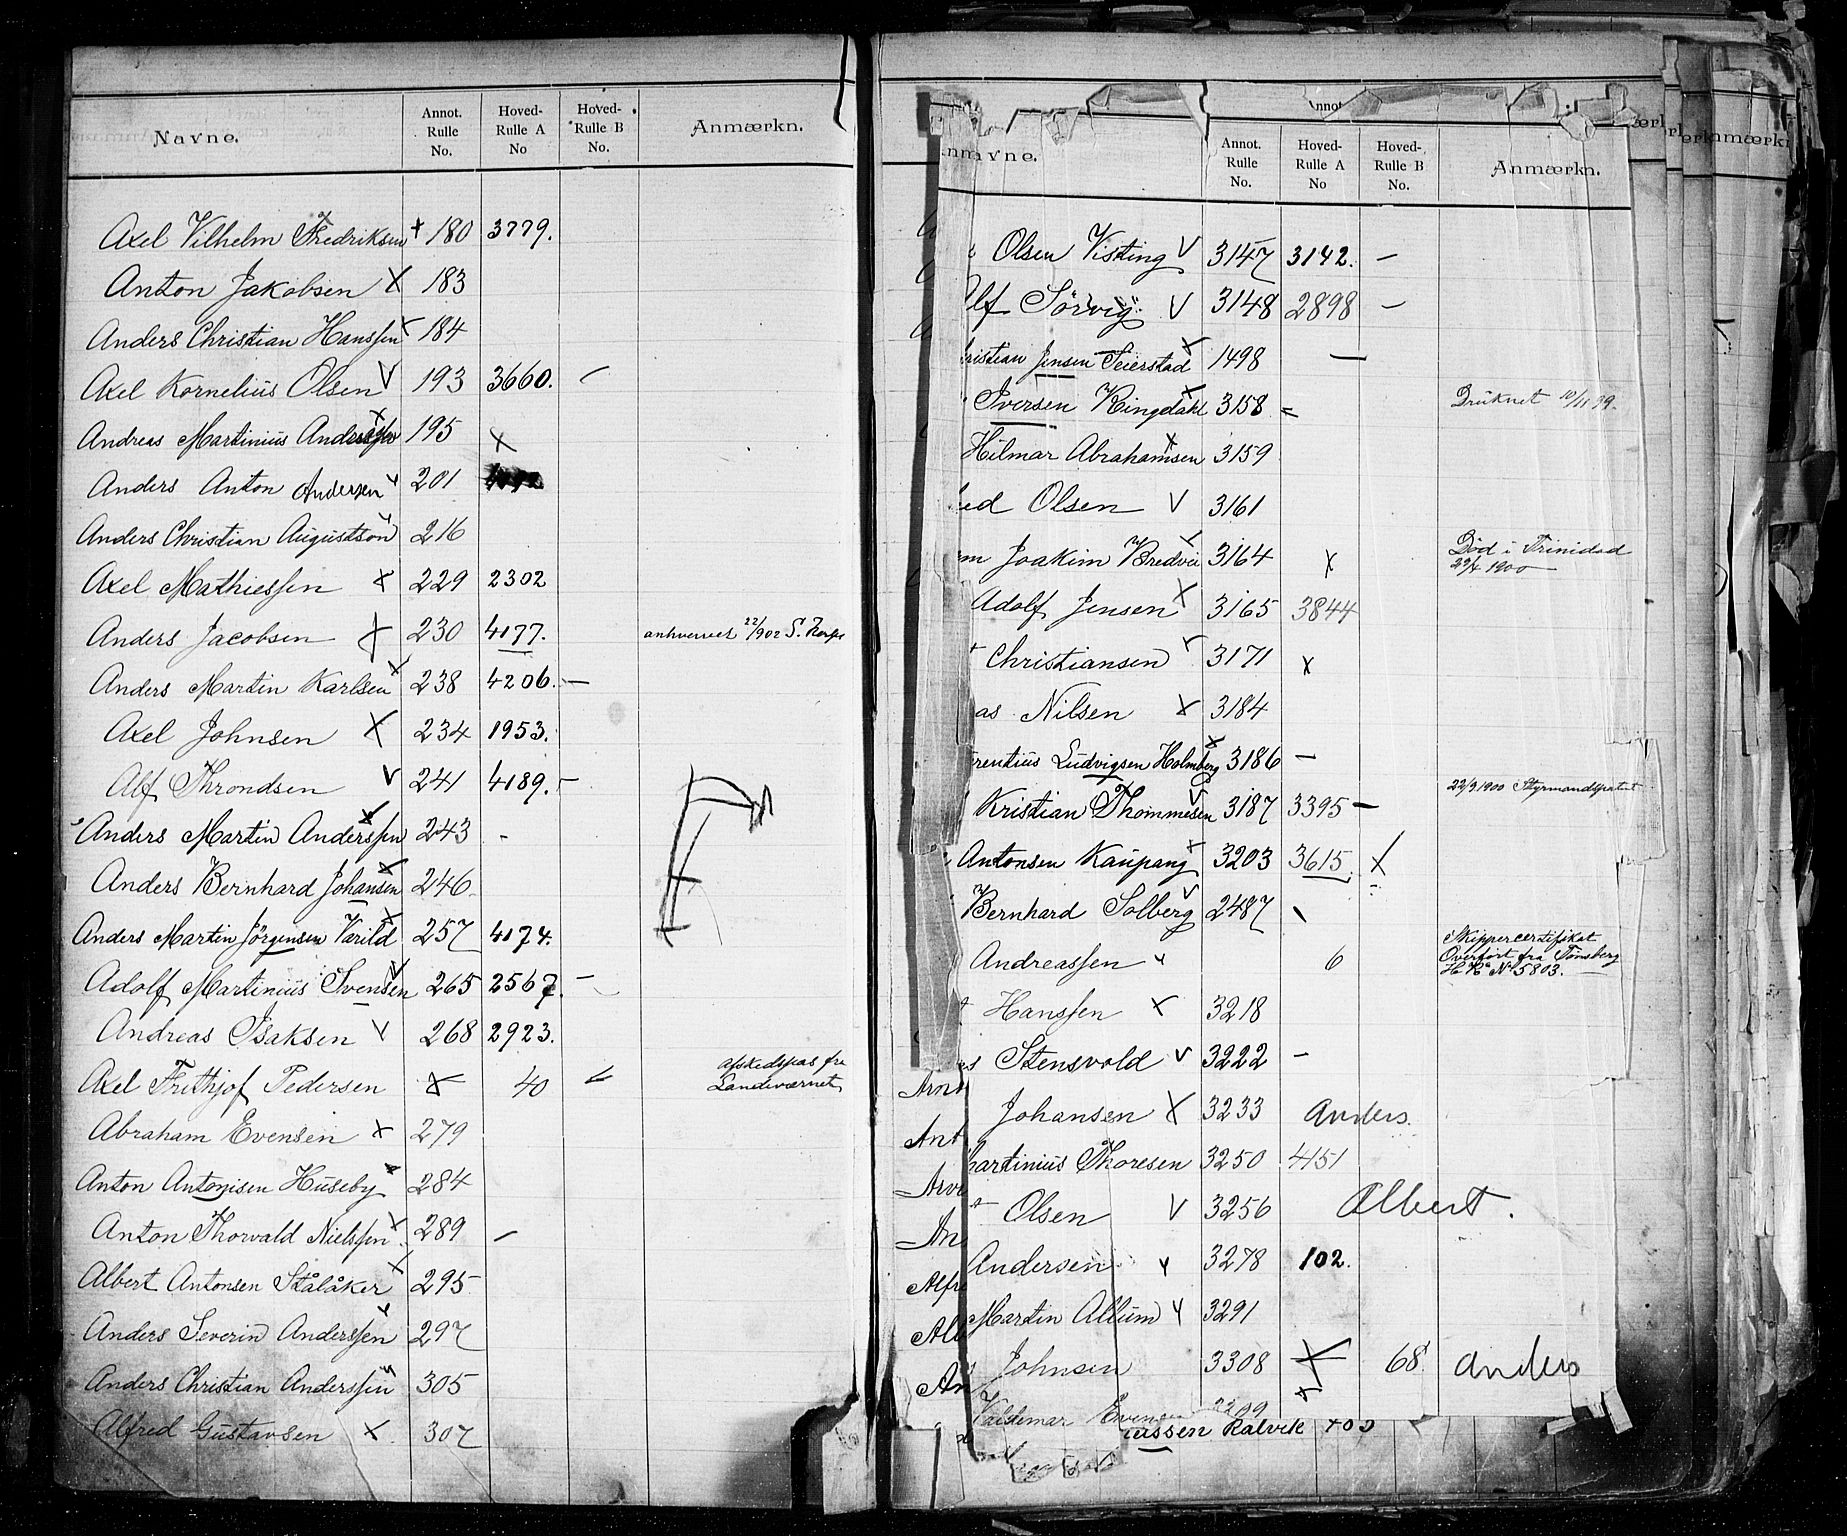 Navne. Annot. Rulle No. Hoved-Rulle A No Hoved-Rulle B No. Anmærkn.
Axel Vilhelm Fredriksen + 180 3779.
Anton Jakobsen X 183
Anders Christian Hanssen X 184
Axel Kornelius Olsen V 193 3660.
Andreas Martinius Anderssen X 195 X
Anders Anton Andersen 201
Anders Christian Augustson 216
Axel Mathiessen X 229 2302
Anders Jacobsen X 230 4177. anhvervet 22/902
Anders Martin Karlsen X 238 4206. —
Axel Johnsen X 234 1953.
Alf Throndsen V 241 4189. -
Anders Martin Anderssen X 243 -
Anders Bernhard Johansen X 246
Anders Martin Jörgensen Varild X 257 4174.
Adolf Martinius Svensen V 265 2567. —
Andreas Isaksen V 268 2923.
Axel Frithjof Pedersen X 40 Afskedspas fra Landeværnet
Abraham Evensen X 279
Anton Antonisen Huseby X 284
Anton Thorvald Nielssen X 289 —
Albert Antonsen Stålåker X 295
Anders Severin Anderssen 297
Anders Christian Anderssen 305
Alfred Gustavsen X 307
Arnt
Ant
Arvi
An
Alfre
Alb
An
avne. Annot. Rulle No. Hoved-Rulle A No Hoved-Rulle B No. Anmærkn.
Olsen Visting V 3147 3142. —
lf Sörvig V 3148 2898 —
ristian Jensen Seierstad X 1498 —
Iversen Ringdahl X 3158 = Druknet 10/11 99.
Hilmar Abrahamsen X 3159
ed Olsen V 3161
m Joakim Bredvei 3164 X Död i Trinidad 29/4 1900
Adolf Jensen X 3165 3844
Christiansen 3171 x
as Nilsen X 3184
rentius Ludvigsen Holmberg X 3186 —
Kristian Thommesen V 3187 3395 — 22/9 1900 Styrmandspatent
Antonsen Kaupang X 3203 3615. X
Bernhard Solberg V 2487
Andreassen 6 Skippercertifikat Overfört fra Tönsberg No 5803.
Hanssen X 3218
Stensvold V 3222 —
Johansen X 3233 Anders.
artinius Thoresen 3250 4151
Olsen V 3256 Albert.
Andersen 3278 102.
Martin Allum 3291
Johnsen 3308 X 68 Anders
Valdemar Evensen
ussen Kalvik 403